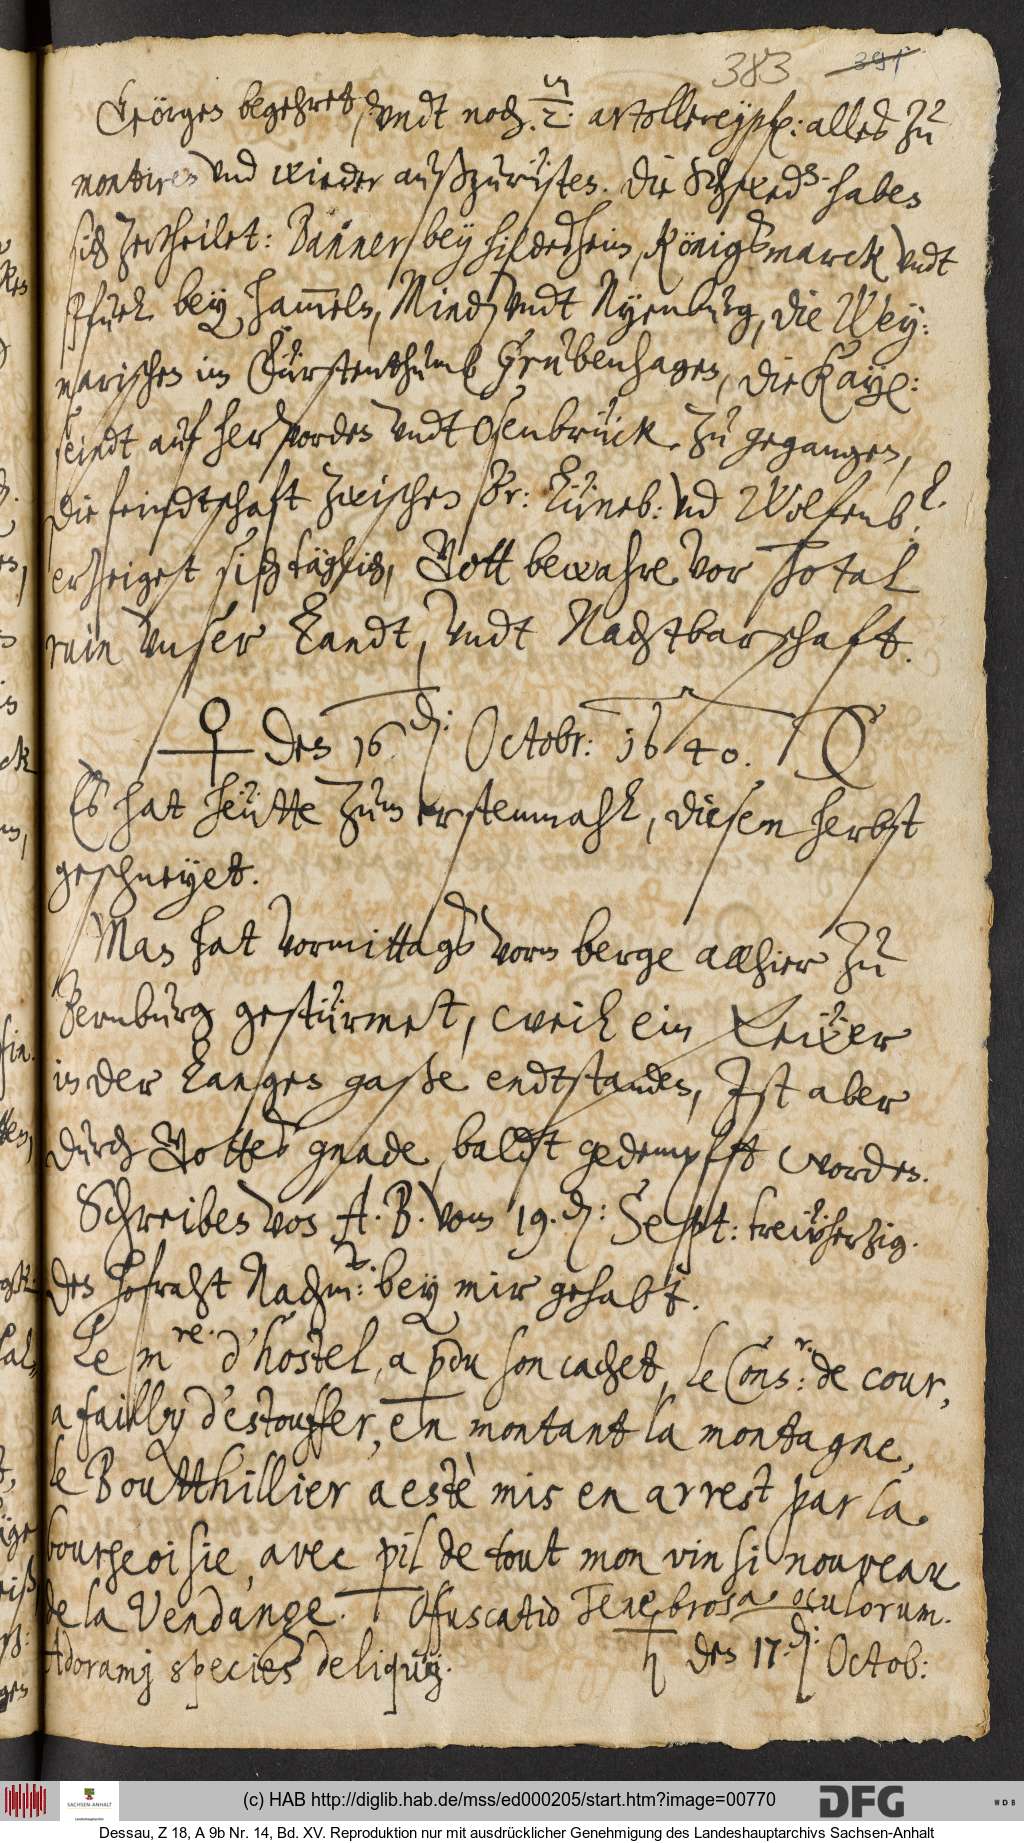 383 391
Geörgen begehret, vndt noch 2m artollereypf: alles zu
montiren vnd wieder außzurüsten. Die Schwed. haben
sich zertheilet: Banner bey Hildesheim, Königsmarck vndt
Pfuel bey Hammeln, Mind. vndt Nyenburg, die Wey:
marischen im Fürstenthumb Grubenhagen, die Kayß:
seindt auf Herworden vndt Osenbrück zu gegangen,
die feindtschaft zwischen Br: Lüneb: vnd Wolfenb:
erheiget sich täglich, Gott bewahre vor Total
ruin vnser Landt, vndt Nachtbarschaft.
♀ den 16. Octobr: 1640.
Es hat heütte zum erstenmahl, diesem herbst
geschneyet.
Man hat vormittags vorm berge allhier zu
Bernburg gestürmet, weil ein
in der Langen gaße endtstanden, Ist aber
durch Gottes gnade baldt gedempfft worden.
Schreiben von A. B. vom 19. Sept: treüherzig.
den hofraht Nachm: bey mir gehabt.
Le mre. d'hostel, a pdu son cachet, le Cons:r. de cour,
a failly d'estouffer, en montant la montagne,
le Boutthillier a estè mis en arrest par la
bourgeoisie, avec pil de tout mon vin si nouveau
de la Vendange. Offuscatio Tenebrosa oculorum.
Adoramj species deliquij. ♄ den 17. Octob:
(c) HAB http://diglib.hab.de/mss/ed000205/start.htm?image=00770
SACHSEN-ANHALT
Landeshauptarchiv
DFG
WDB
Dessau, Z 18, A 9b Nr. 14, Bd. XV. Reproduktion nur mit ausdrücklicher Genehmigung des Landeshauptarchivs Sachsen-Anhalt